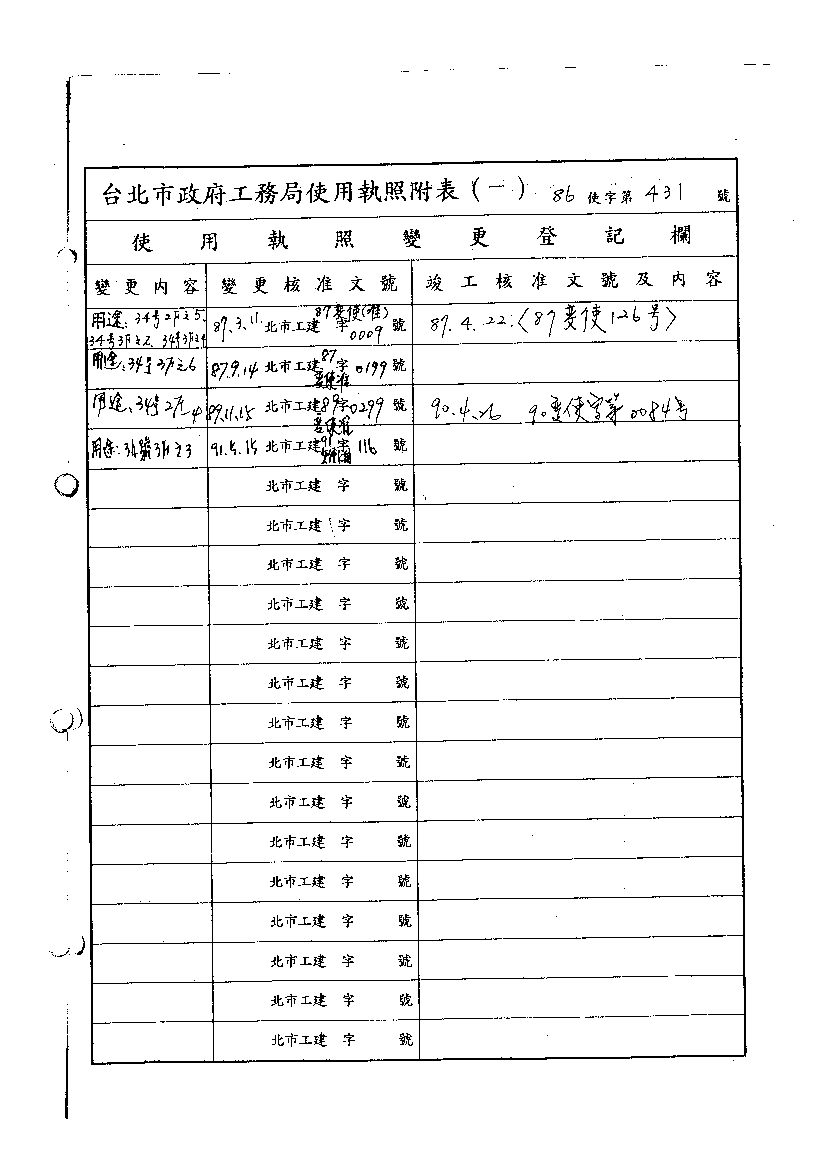 台北市政府工務局使用執照附表(一) 86 使字第 431 號
使用執照變更登記欄
變更內容 變更核准文號 竣工核准文號及內容
用途:34号2F之5、34号3F之2、34号3F之4 87.3.11. 北市工建 87變使(准) 字 0009 號 87.4.22.〈87變使126号〉
用途:34号3F之6 87.9.14 北市工建 87變使准 字 0199 號
用途:34号2F之4 89.11.15 北市工建 89變使准 字 0299 號 90.4.26 90變使字第0084号
用途:34號3F之3 91.5.15 北市工建 91 字 116 號
北市工建 字 號
北市工建 字 號
北市工建 字 號
北市工建 字 號
北市工建 字 號
北市工建 字 號
北市工建 字 號
北市工建 字 號
北市工建 字 號
北市工建 字 號
北市工建 字 號
北市工建 字 號
北市工建 字 號
北市工建 字 號
北市工建 字 號